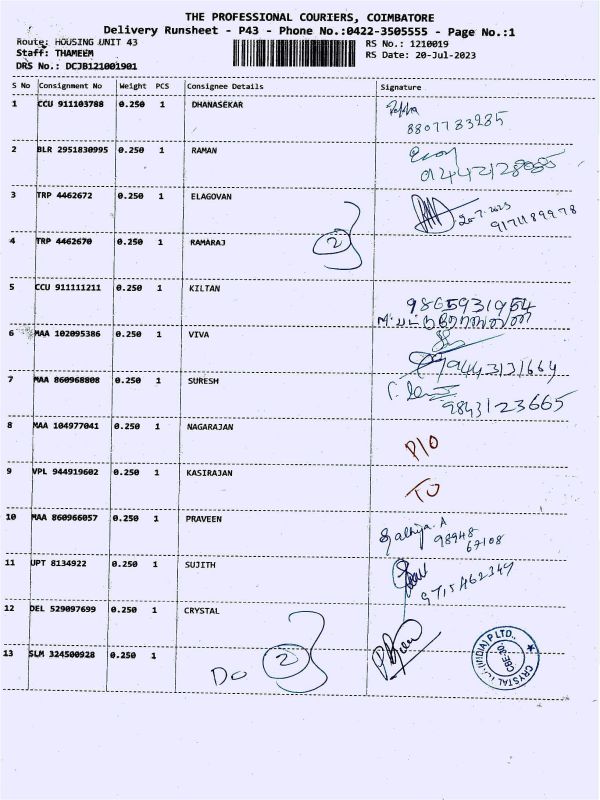 THE PROFESSIONAL COURIERS, COIMBATORE
Delivery Runsheet - P43 - Phone No.:0422-3505555 - Page No.:1
Route: HOUSING UNIT 43
RS No.: 1210019
Staff: THAMEEM
RS Date: 20-Jul-2023
DRS No.: DCJB121001901
S No Consignment No Weight PCS Consignee Details Signature
1 CCU 911103788 0.250 1 DHANASEKAR
8807783985
2 BLR 2951830995 0.250 1 RAMAN
3 TRP 4462672 0.250 1 ELAGOVAN
20-7-2023
9171189978
4 TRP 4462670 0.250 1 RAMARAJ 2
5 CCU 911111211 0.250 1 KILTAN
9865931954
6 MAA 102095386 0.250 1 VIVA
94443131664
7 MAA 860968808 0.250 1 SURESH
9843123665
8 MAA 104977041 0.250 1 NAGARAJAN
P/O
9 VPL 944919602 0.250 1 KASIRAJAN
TO
10 MAA 860966057 0.250 1 PRAVEEN
Sathya. A
98948
67108
11 UPT 8134922 0.250 1 SUJITH
9715462347
12 DEL 529097699 0.250 1 CRYSTAL
13 SLM 324500928 0.250 1
Do 2
CRYSTAL (INDIA) P LTD.,
CBE-30